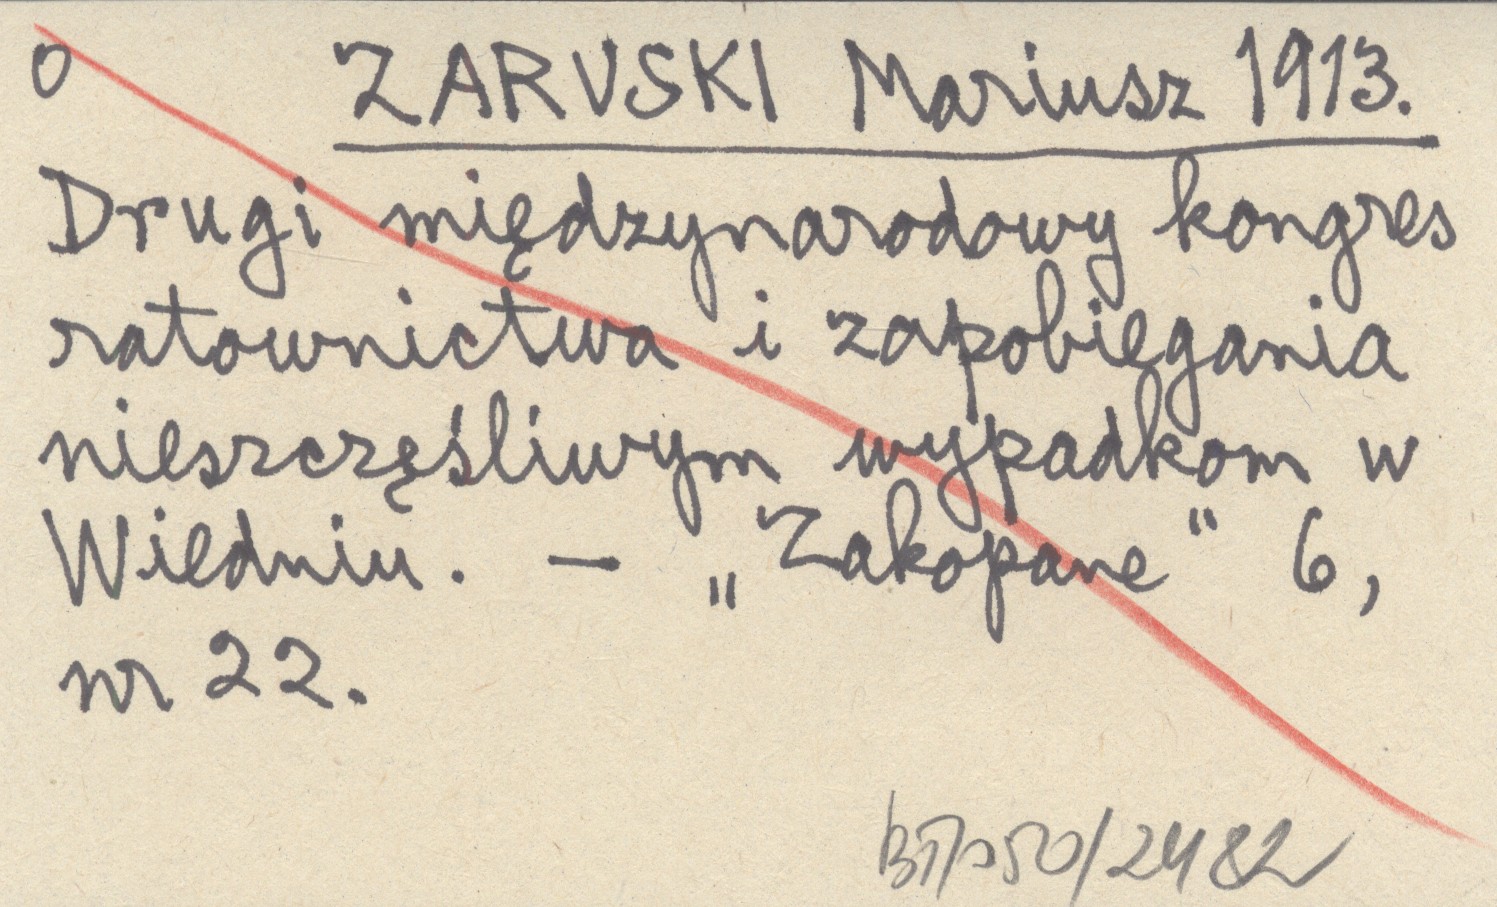 o ZARUSKI Mariusz 1913.
Drugi międzynarodowy kongres
ratownictwa i zapobiegania
nieszczęśliwym wypadkom w
Wiedniu. — „Zakopane" 6,
nr 22.